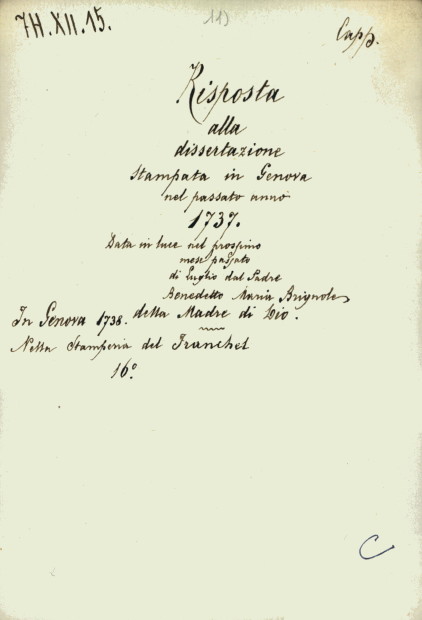 7H.XII.15.
113
Capp.
Risposta
alla
dissertazione
stampata in Genova
nel passato anno
1737.
Data in luce nel prossimo
mese passato
di Luglio dal Padre
Benedetto Maria Brignole
della Madre di Dio.
In Genova 1738.
Nella Stamperia del Franchel
16°
C